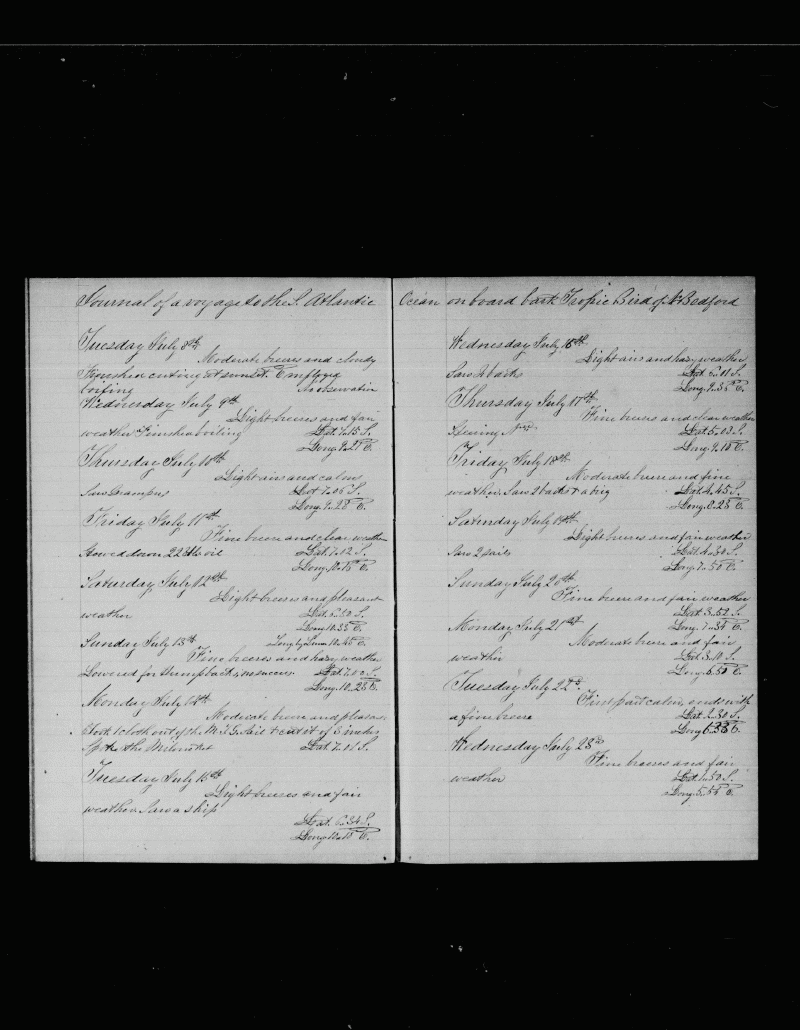 Journal of a voyage to the S. Atlantic
Tuesday July 8th
Moderate breeses and cloudy
Finished cuting at sunset. Employd
boiling No observation
Wednesday July 9th
Light breeses and fair
weather Finished boiling Lat. 7.15 S.
Long. 9.21 E.
Thursday July 10th
Light airs and calms
Saw Grampus Lat 7.05 S.
Long. 9.28 E.
Friday July 11th
Fine breese and clear weather
Stowed down 225 bbls oil Lat. 7.12 S.
Long. 10.15 E.
Saturday July 12th
Light breeses and pleasant
weather Lat. 6.50 S.
Long. 10.38 E.
Sunday July 13th Long by Lunar 10.45 E.
Fine breeses and hazy weather
Lowered for Humpbacks, no succes Lat 7.00 S.
Long. 10.28 E.
Monday July 14th
Moderate breese and pleasant
took 1 cloth out of the M.T.G. Sail & cut it of 8 inches
Lat 7.01 S.
Tuesday July 15th
Light breeses and fair
weather. Saw a ship
Lat. 6.34 S.
Long 10.13 E.
Ocean on board bark Tropic Bird of N Bedford
Wednesday July 16th
Light airs and hazy weather
Saw 4 barks Lat. 6.01 S.
Long. 9.38 E.
Thursday July 17th
Fine breeses and clear weather
Lat. 5.03 S.
Long. 9.18 E.
Friday July 18th
Moderate breese and fine
weather. Saw 2 barks & a brig Lat. 4.45 S.
Long. 8.28 E.
Saturday July 19th
Light breeses and fair weather
Saw 2 sails Lat. 4.30 S.
Long. 7.50 E.
Sunday July 20th
Fine breese and fair weather
Lat 3.52 S.
Monday July 21st Long. 7.34 E.
Moderate breese and fair
weather Lat. 3.10 S.
Long. 6.50 E.
Tuesday July 22d
First part calm, ends with
a fine breese Lat. 2.30 S.
Long 6.38 E.
Wednesday July 23d
Fine breeses and fair
weather Lat. 1.50 S.
Long. 5.58 E.